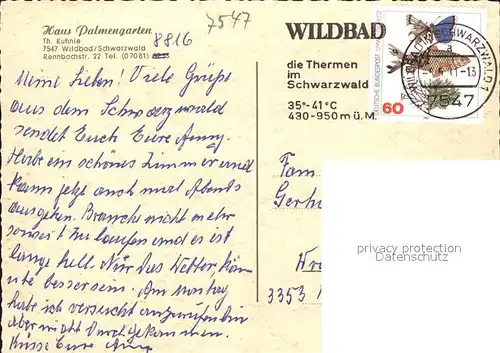 Haus Palmengarten
Th. Kuhnle
7547 Wildbad/Schwarzwald
Rennbachstr. 22 Tel. (07081)
8816
7547
Meine Lieben! Viele Grüße
aus dem Schwarzwald
sendet Euch Eure Anny.
Habe ein schönes Zimmer und
kann jetzt auch mal Abends
ausgehen. Brauche nicht mehr
so weit zu laufen und es ist
lange hell. Nur das Wetter kön
nte besser sein. Am Montag
habe ich versucht anzurufen bin
aber nicht durchgekommen.
Küsse Eure Anny
WILDBAD
die Thermen
im
Schwarzwald
35°-41°C
430-950 m ü. M.
DEUTSCHE BUNDESPOST
60
WILDBAD I SCHWARZWALD 1
a
11-13
7547
Fam
Gerh
3353
privacy protection
Datenschutz